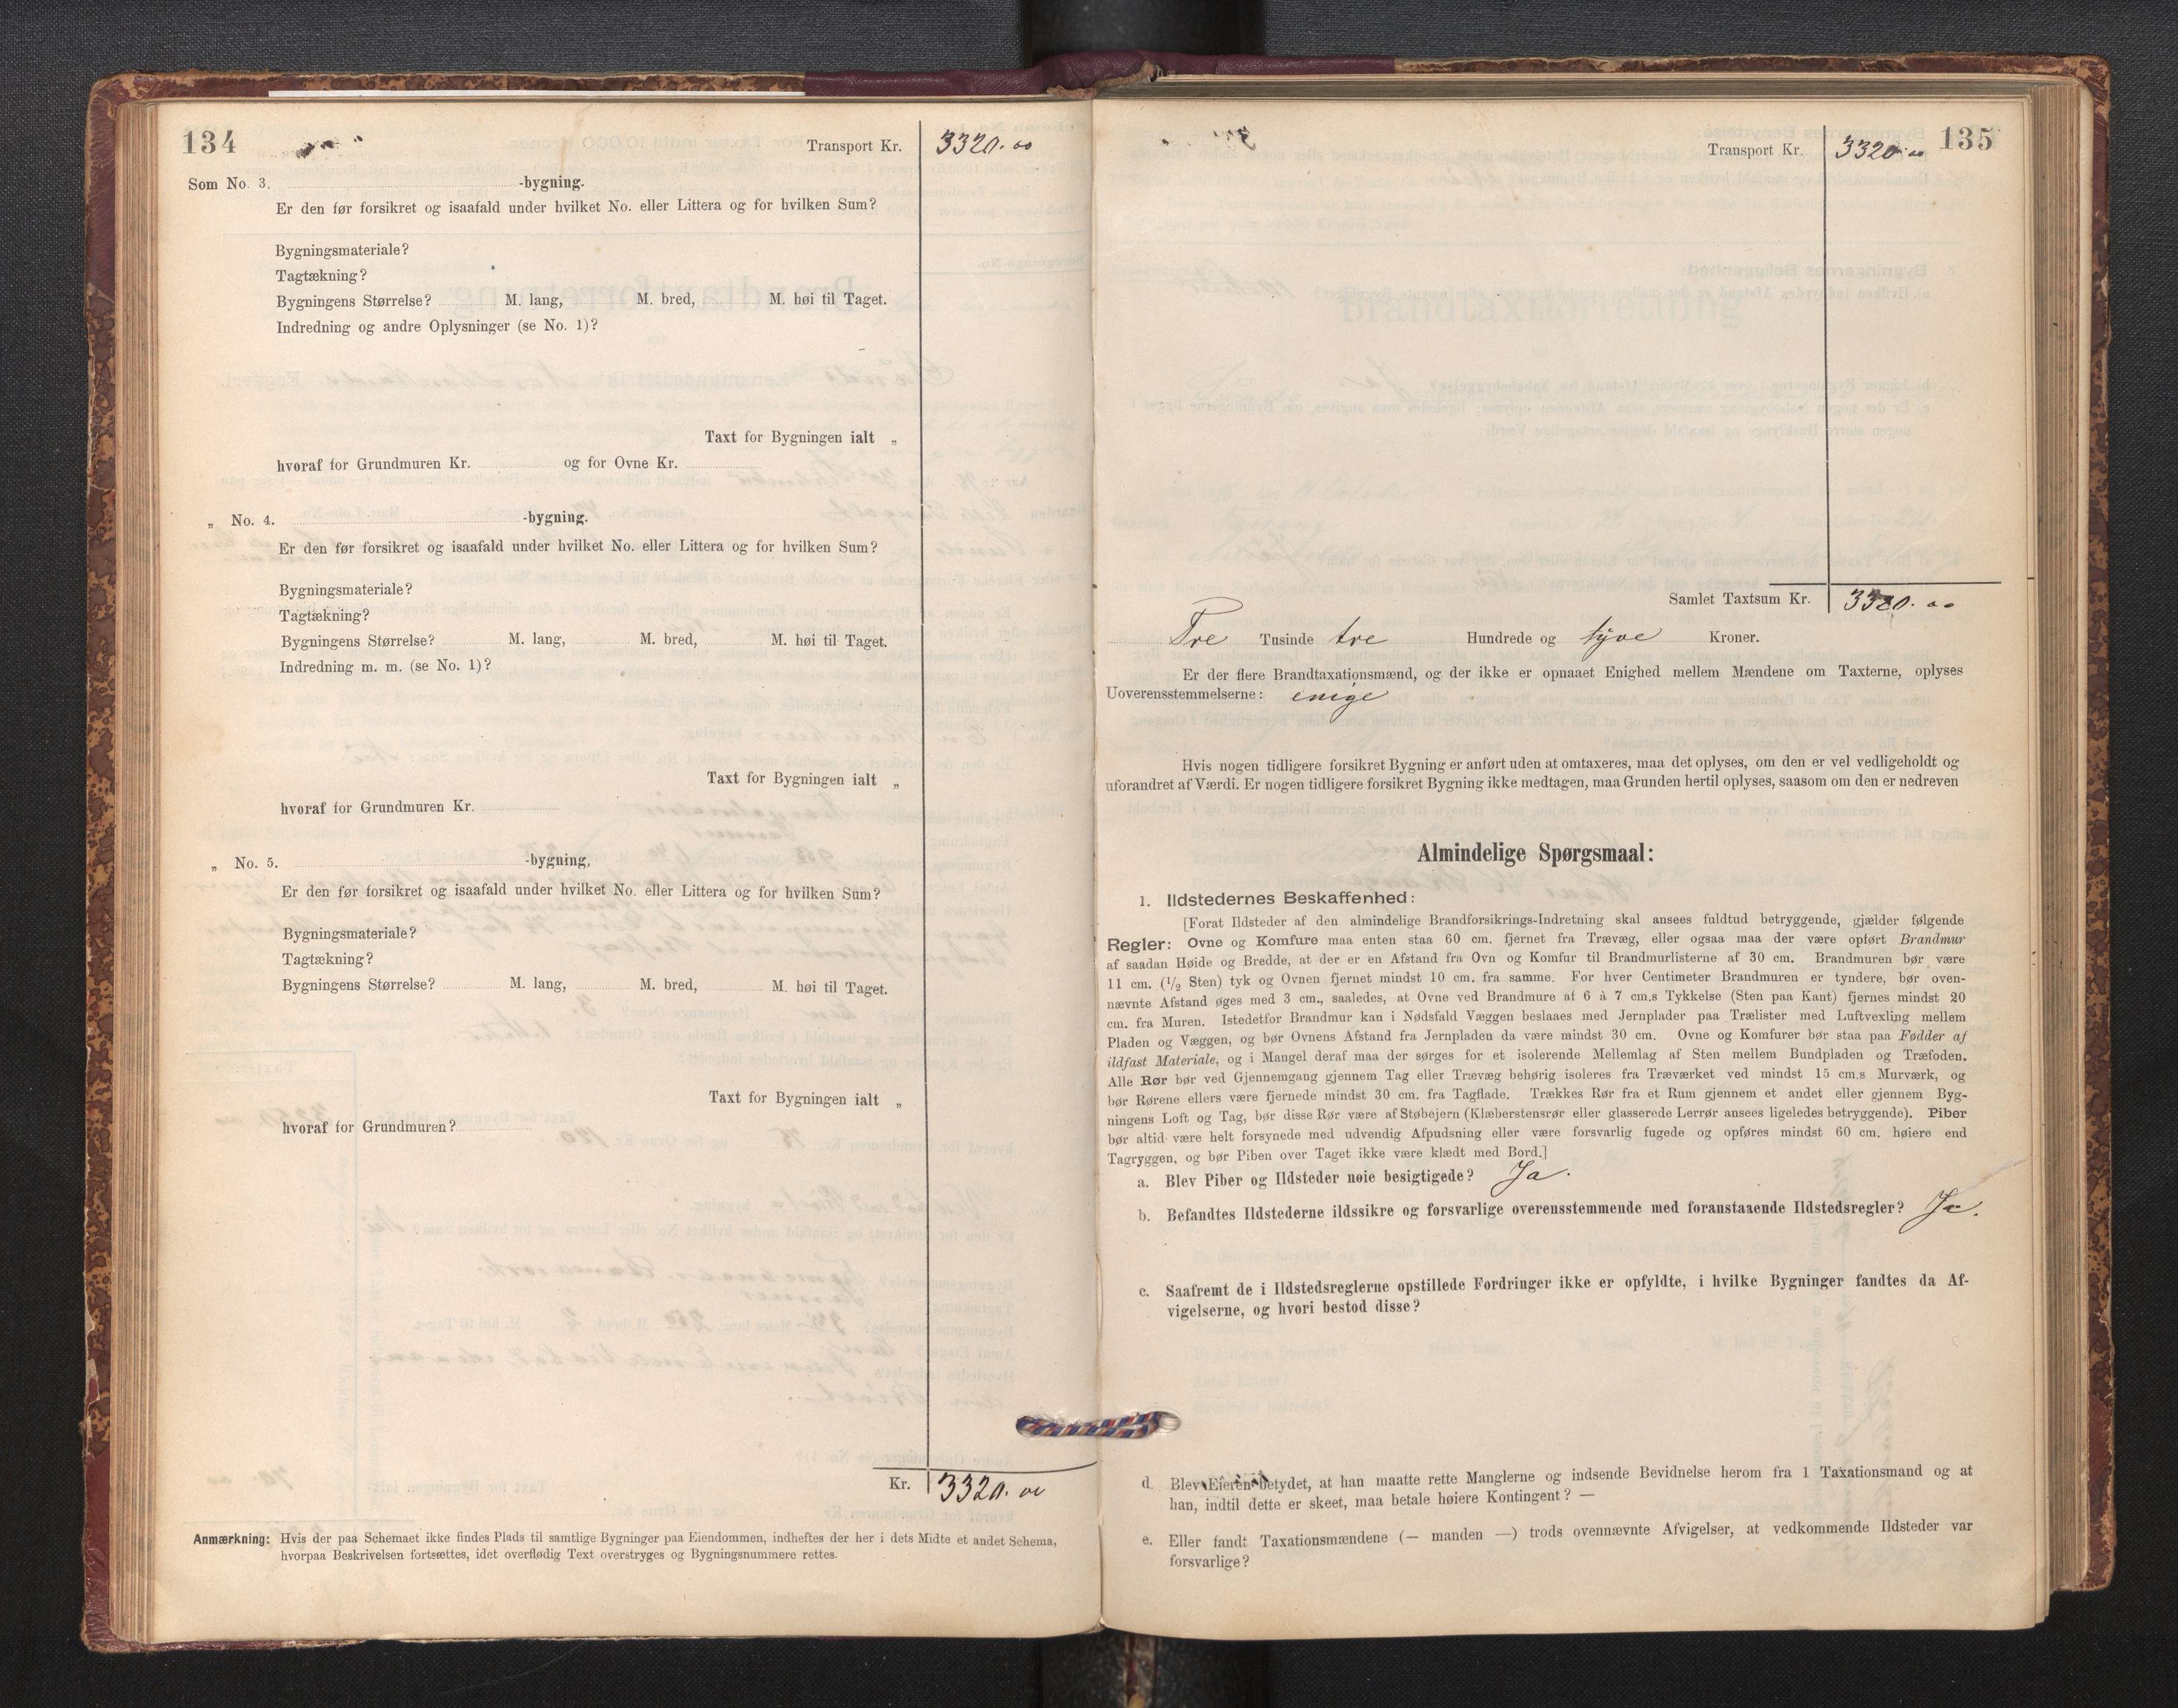 134
Transport Kr. 3320.00
Som No. 3. -bygning.
Er den før forsikret og isaafald under hvilket No. eller Littera og for hvilken Sum?
Bygningsmateriale?
Tagtækning?
Bygningens Størrelse? M. lang, M. bred, M. høi til Taget.
Indredning og andre Oplysninger (se No. 1)?
Taxt for Bygningen ialt „
hvoraf for Grundmuren Kr. og for Ovne Kr.
„ No. 4. -bygning.
Er den før forsikret og isaafald under hvilket No. eller Littera og for hvilken Sum?
Bygningsmateriale?
Tagtækning?
Bygningens Størrelse? M. lang, M. bred, M. høi til Taget.
Indredning m. m. (se No. 1)?
Taxt for Bygningen ialt „
hvoraf for Grundmuren Kr.
„ No. 5. -bygning,
Er den før forsikret og isaafald under hvilket No. eller Littera og for hvilken Sum?
Bygningsmateriale?
Tagtækning?
Bygningens Størrelse? M. lang, M. bred, M. høi til Taget.
Taxt for Bygningen ialt „
hvoraf for Grundmuren?
Kr. 3320.00
Anmærkning: Hvis der paa Schemaet ikke findes Plads til samtlige Bygninger paa Eiendommen, indheftes der her i dets Midte et andet Schema,
hvorpaa Beskrivelsen fortsættes, idet overflødig Text overstryges og Bygningsnummere rettes.
135
Transport Kr. 3320.00
Samlet Taxtsum Kr. 3320.00
Tre Tusinde tre Hundrede og tyve Kroner.
Er der flere Brandtaxationsmænd, og der ikke er opnaaet Enighed mellem Mændene om Taxterne, oplyses
Uoverensstemmelserne: enige
Hvis nogen tidligere forsikret Bygning er anført uden at omtaxeres, maa det oplyses, om den er vel vedligeholdt og
uforandret af Værdi. Er nogen tidligere forsikret Bygning ikke medtagen, maa Grunden hertil oplyses, saasom om den er nedreven
Almindelige Spørgsmaal:
1. Ildstedernes Beskaffenhed:
[Forat Ildsteder af den almindelige Brandforsikrings-Indretning skal ansees fuldtud betryggende, gjælder følgende
Regler: Ovne og Komfure maa enten staa 60 cm. fjernet fra Trævæg, eller ogsaa maa der være opført Brandmur
af saadan Høide og Bredde, at der er en Afstand fra Ovn og Komfur til Brandmurlisterne af 30 cm. Brandmuren bør være
11 cm. (1/2 Sten) tyk og Ovnen fjernet mindst 10 cm. fra samme. For hver Centimeter Brandmuren er tyndere, bør oven-
nævnte Afstand øges med 3 cm., saaledes, at Ovne ved Brandmure af 6 à 7 cm.s Tykkelse (Sten paa Kant) fjernes mindst 20
cm. fra Muren. Istedetfor Brandmur kan i Nødsfald Væggen beslaaes med Jernplader paa Trælister med Luftvexling mellem
Pladen og Væggen, og bør Ovnens Afstand fra Jernpladen da være mindst 30 cm. Ovne og Komfurer bør staa paa Fødder af
ildfast Materiale, og i Mangel deraf maa der sørges for et isolerende Mellemlag af Sten mellem Bundpladen og Træfoden.
Alle Rør bør ved Gjennemgang gjennem Tag eller Trævæg behørig isoleres fra Træværket ved mindst 15 cm.s Murværk, og
bør Rørene ellers være fjernede mindst 30 cm. fra Tagflade. Trækkes Rør fra et Rum gjennem et andet eller gjennem Byg-
ningens Loft og Tag, bør disse Rør være af Støbejern (Klæberstensrør eller glasserede Lerrør ansees ligeledes betryggende). Piber
bør altid være helt forsynede med udvendig Afpudsning eller være forsvarlig fugede og opføres mindst 60 cm. høiere end
Tagryggen, og bør Piben over Taget ikke være klædt med Bord.]
a. Blev Piber og Ildsteder nøie besigtigede? Ja.
b. Befandtes Ildstederne ildssikre og forsvarlige overensstemmende med foranstaaende Ildstedsregler? Ja.
c. Saafremt de i Ildstedsreglerne opstillede Fordringer ikke er opfyldte, i hvilke Bygninger fandtes da Af-
vigelserne, og hvori bestod disse?
d. Blev Eieren betydet, at han maatte rette Manglerne og indsende Bevidnelse herom fra 1 Taxationsmand og at
han, indtil dette er skeet, maa betale høiere Kontingent? —
e. Eller fandt Taxationsmændene (— manden —) trods ovennævnte Afvigelser, at vedkommende Ildsteder var
forsvarlige?